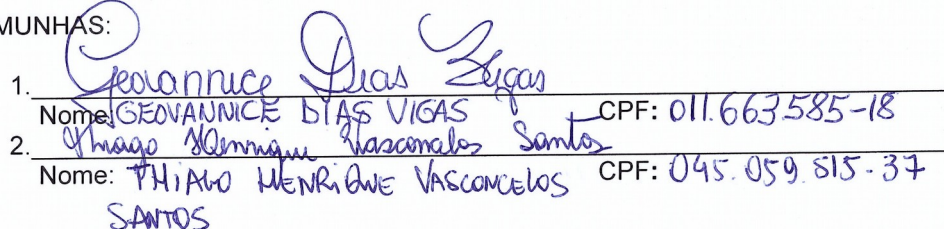 MUNHAS:
1. Geovannice Dias Vigas
Nome: GEOVANNICE DIAS VIGAS CPF: 011.663.585-18
2. Thiago Henrique Vasconcelos Santos
Nome: THIAGO HENRIQUE VASCONCELOS CPF: 045.059.815-37
SANTOS